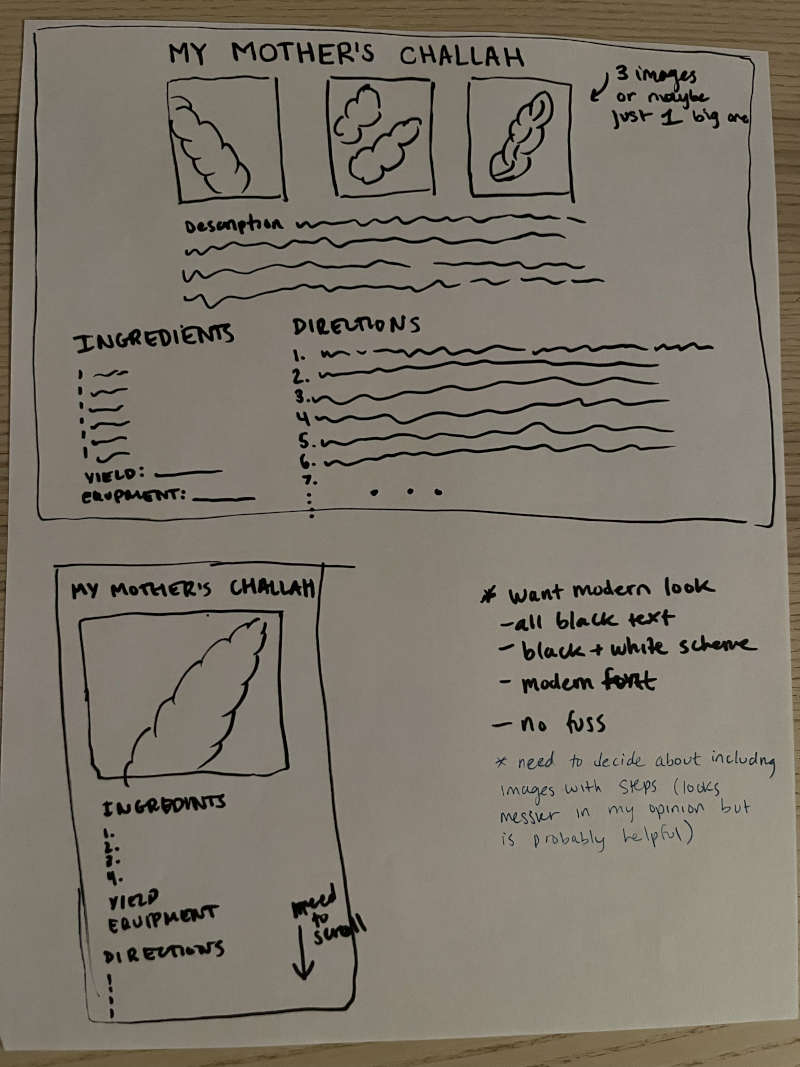 MY MOTHER'S CHALLAH
3 images
or maybe
just 1 big one
Description
INGREDIENTS
DIRECTIONS
1.
2.
3.
4
5.
6.
7.
YIELD:
EQUPMENT:
MY MOTHER'S CHALLAH
INGREDINTS
1.
2.
3.
4.
YIELD
EQUIPMENT
DIRECTIONS
need
to
scroll
* want modern look
- all black text
- black + white scheme
- modern font
- no fuss
* need to decide about including
images with steps (looks
messier in my opinion but
is probably helpful)